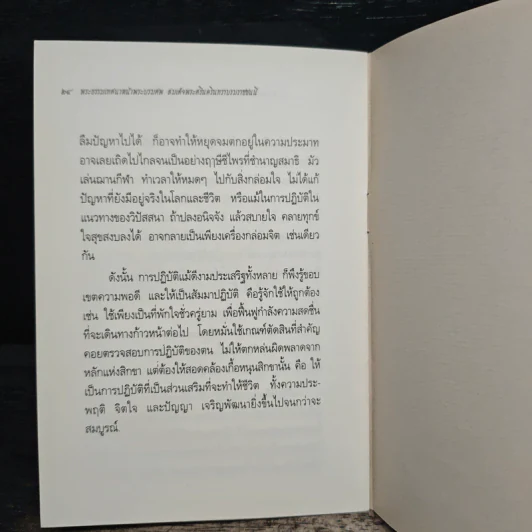 ๒๘ พระธรรมเทศนาหน้าพระบรมศพ สมเด็จพระศรีนครินทราบรมราชชนนี
ลืมปัญหาไปได้ ก็อาจทำให้หยุดจมตกอยู่ในความประมาท
อาจเลยเถิดไปไกลจนเป็นอย่างฤๅษีชีไพรที่ชำนาญสมาธิ มัว
เล่นฌานกีฬา ทำเวลาให้หมดๆ ไปกับสิ่งกล่อมใจ ไม่ได้แก้
ปัญหาที่ยังมีอยู่จริงในโลกและชีวิต หรือแม้ในการปฏิบัติใน
แนวทางของวิปัสสนา ถ้าปลงอนิจจัง แล้วสบายใจ คลายทุกข์
ใจสุขสงบลงได้ อาจกลายเป็นเพียงเครื่องกล่อมจิต เช่นเดียว
กัน
ดังนั้น การปฏิบัติแม้ดีงามประเสริฐทั้งหลาย ก็พึงรู้ขอบ
เขตความพอดี และให้เป็นสัมมาปฏิบัติ คือรู้จักใช้ให้ถูกต้อง
เช่น ใช้เพียงเป็นที่พักใจชั่วครู่ยาม เพื่อฟื้นฟูกำลังความสดชื่น
ที่จะเดินทางก้าวหน้าต่อไป โดยหมั่นใช้เกณฑ์ตัดสินที่สำคัญ
คอยตรวจสอบการปฏิบัติของตน ไม่ให้ตกหล่นผิดพลาดจาก
หลักแห่งสิกขา แต่ต้องให้สอดคล้องเกื้อหนุนสิกขานั้น คือ ให้
เป็นการปฏิบัติที่เป็นส่วนเสริมที่จะทำให้ชีวิต ทั้งความประ-
พฤติ จิตใจ และปัญญา เจริญพัฒนายิ่งขึ้นไปจนกว่าจะ
สมบูรณ์